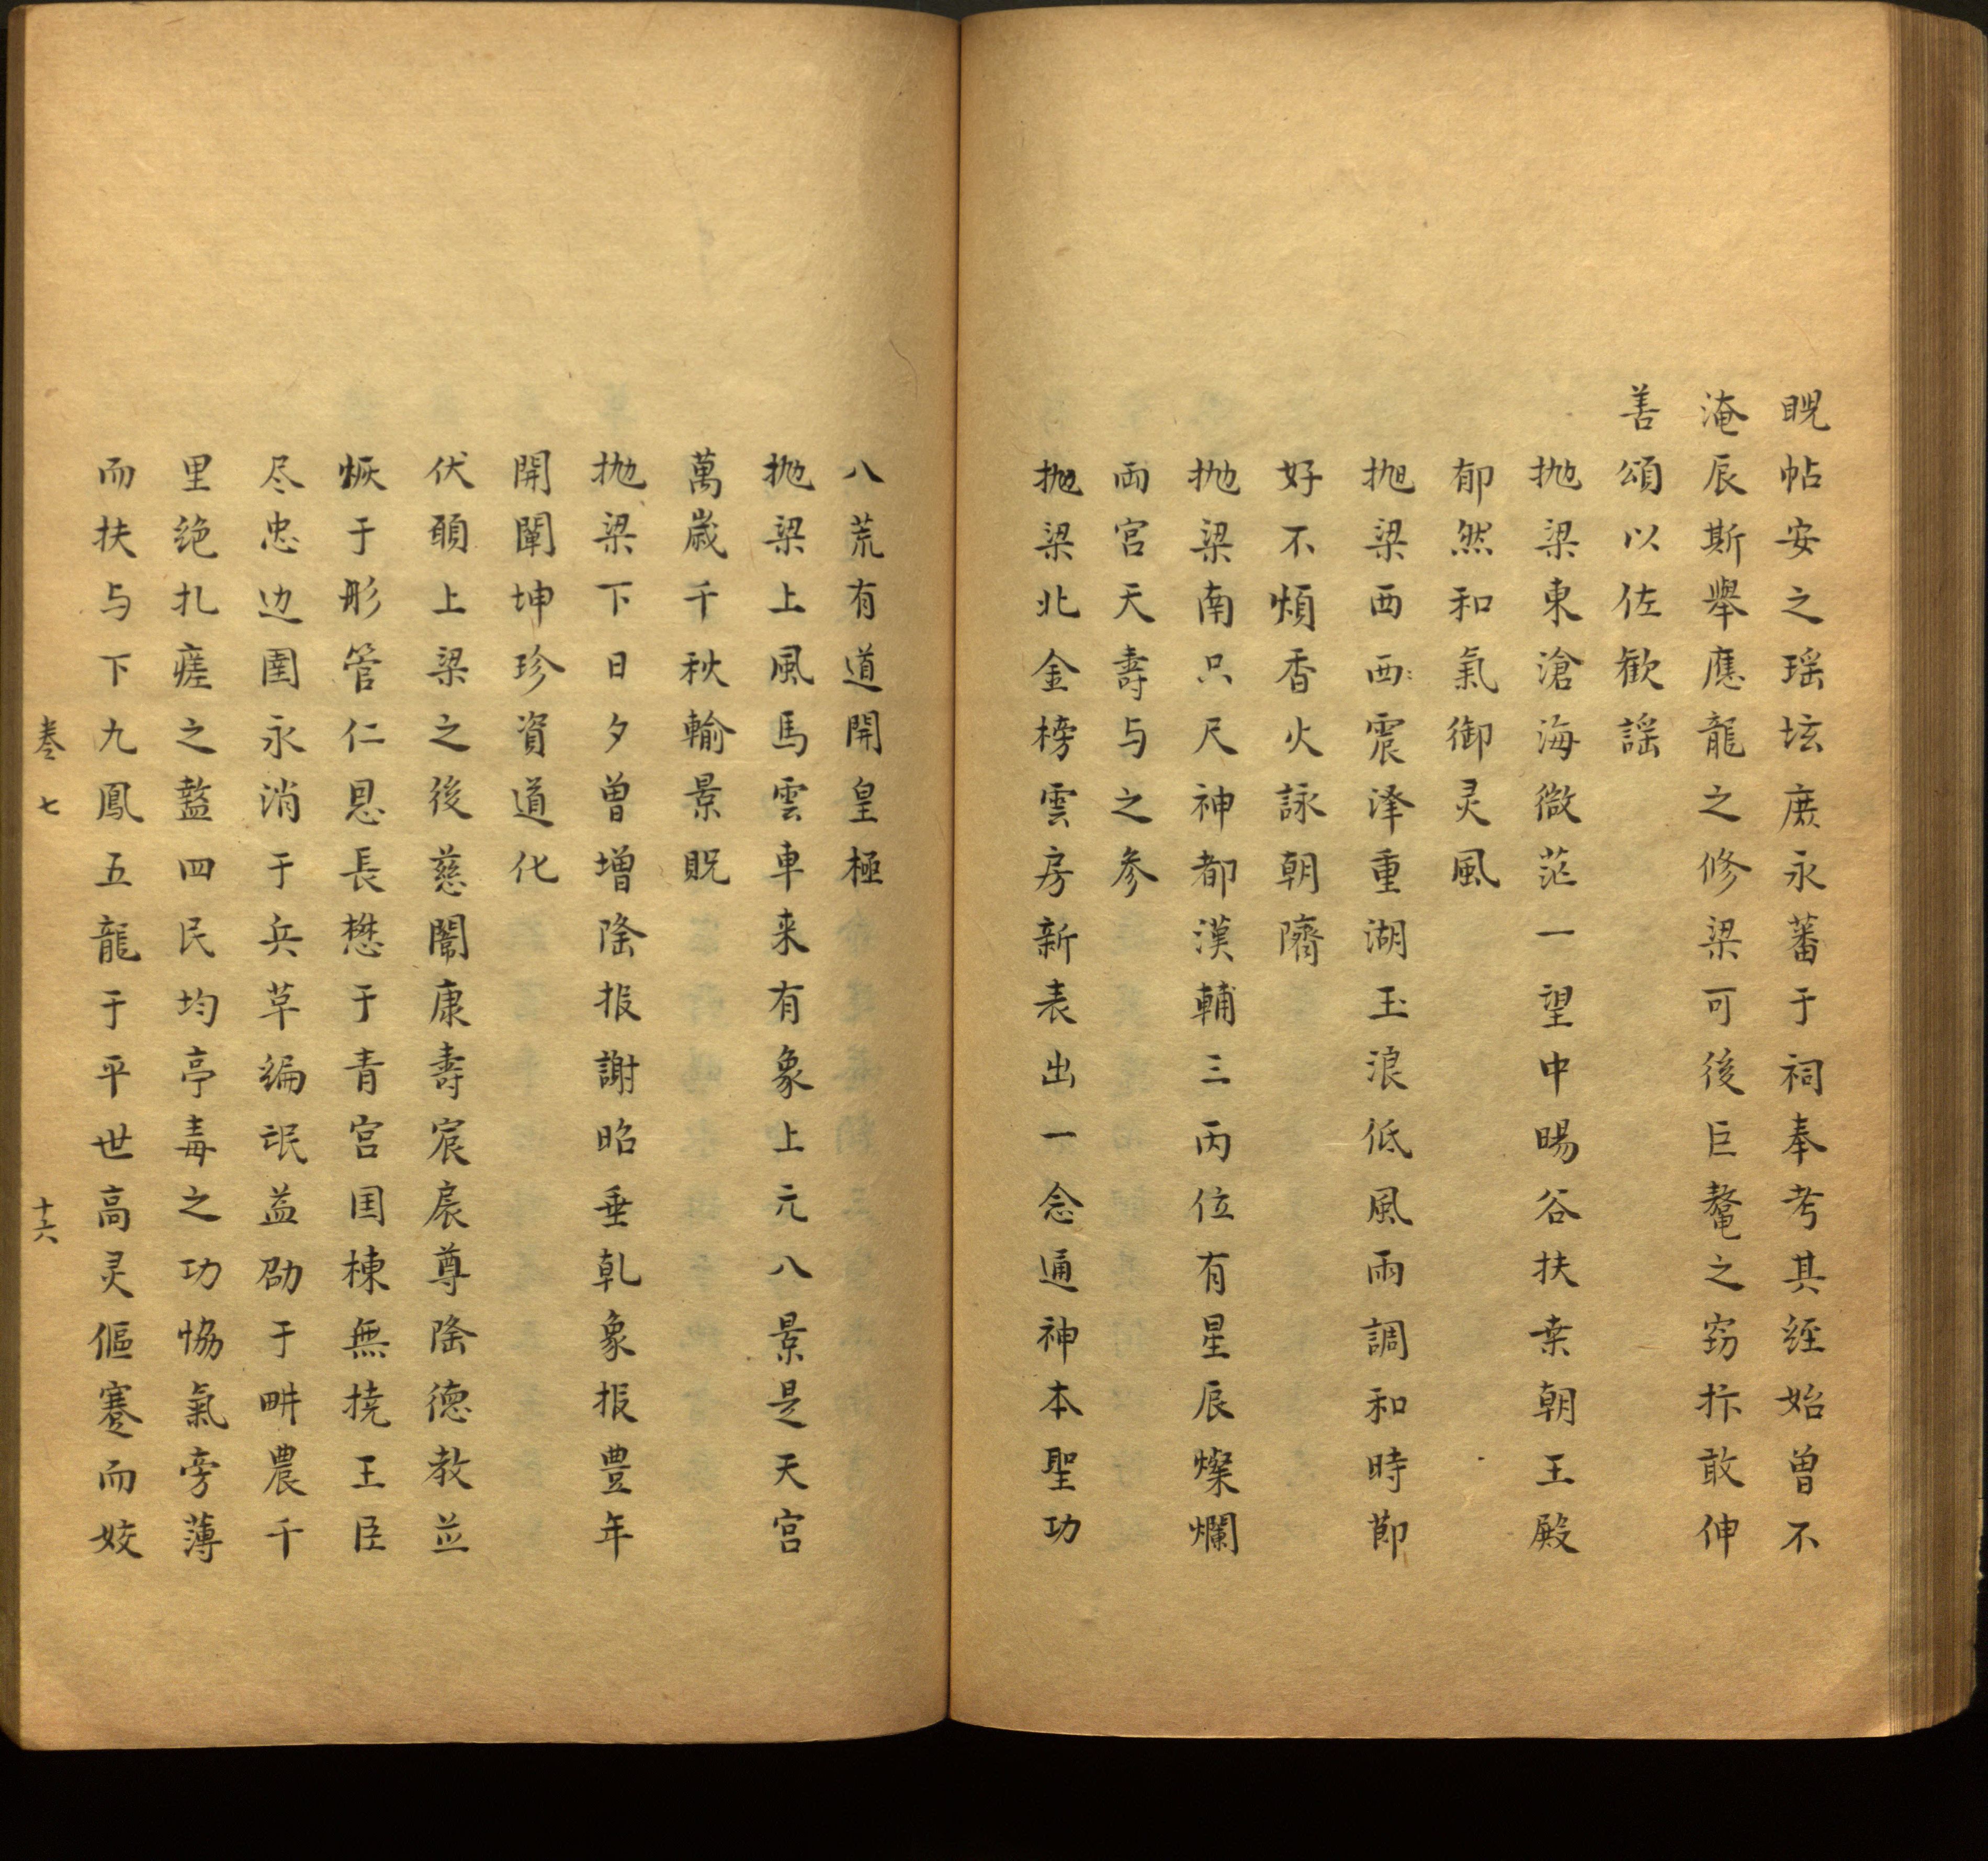 睨帖安之瑶坛庶永蕃于祠奉考其経始曾不
淹辰斯舉應龍之修梁可後巨鼇之窈抃敢伸
善頌以佐歓謡
抛梁東滄海微茫一望中暘谷扶桒朝王殿
郁然和氣御灵風
抛梁西西震泽重湖玉浪低風雨調和時節
好不煩香火詠朝隮
抛梁南只尺神都漢輔三丙位有星辰燦爛
兩宫天壽与之参
抛梁北金榜雲房新表出一念通神本聖功
八荒有道開皇極
抛梁上風馬雲車来有象上元八景是天宫
萬歲千秋輸景貺
抛梁下日夕曾增陰报謝昭垂乹象报豊年
開闡坤珍資道化
伏願上梁之後慈闈康壽宸扆尊隆德教並
恢于彤管仁恩長懋于青宫国棟無撓王臣
尽忠边圉永消于兵草编氓益劭于畊農千
里绝扎瘥之盭四民均亭毒之功恊氣旁薄
而扶与下九鳳五龍于平世高灵傴蹇而姣
卷七 十六